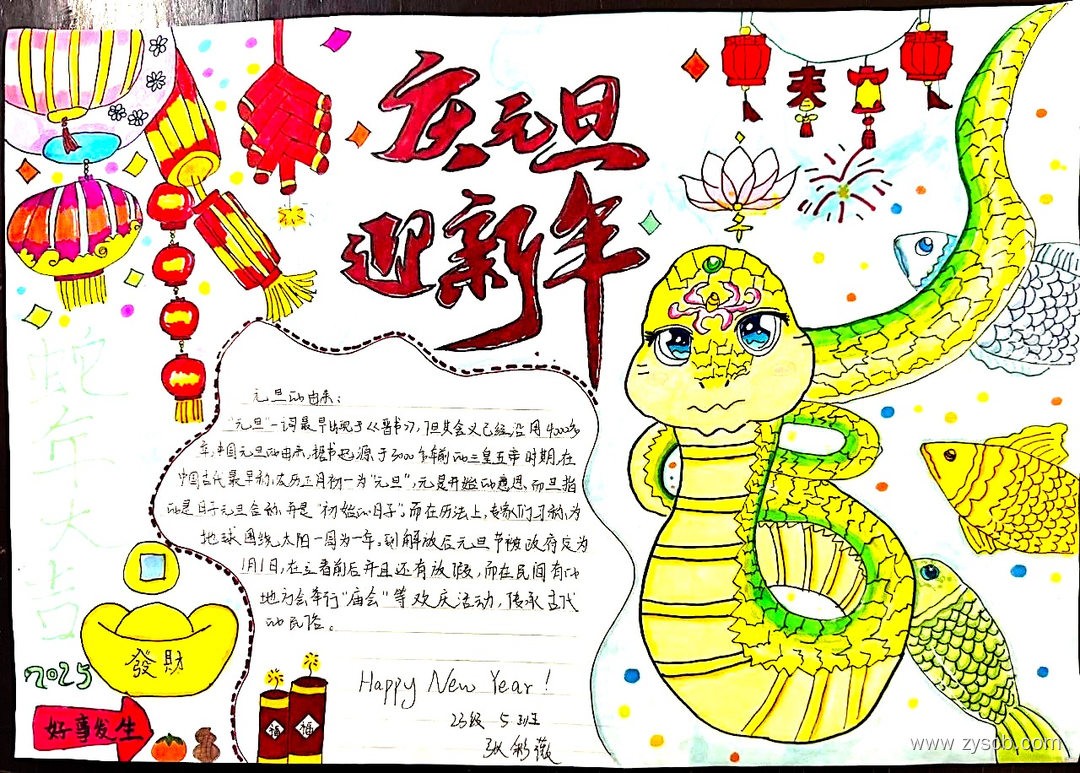 庆元旦
迎新年
来
元旦的由来：
"元旦"一词最早出现于《晋书》，但其含义已经沿用4000多
年，中国元旦的由来，据书起源于3000多年前的三皇五帝时期，在
中国古代最早称农历正月初一为"元旦"，元是开始的意思，而旦指
的是日子元旦合称并是"初始的日子"。而在历法上，专家们习称为
地球围绕太阳一周为一年，到解放后元旦节被政府定为
1月1日，在立春前后并且还有放假，而在民间有的
地方会举行"庙会"等欢庆活动，传承古代
的民俗。
Happy New Year!
23级 5班
蛇年大吉
發财
2025
好事发生
福
福
www.zysob.com